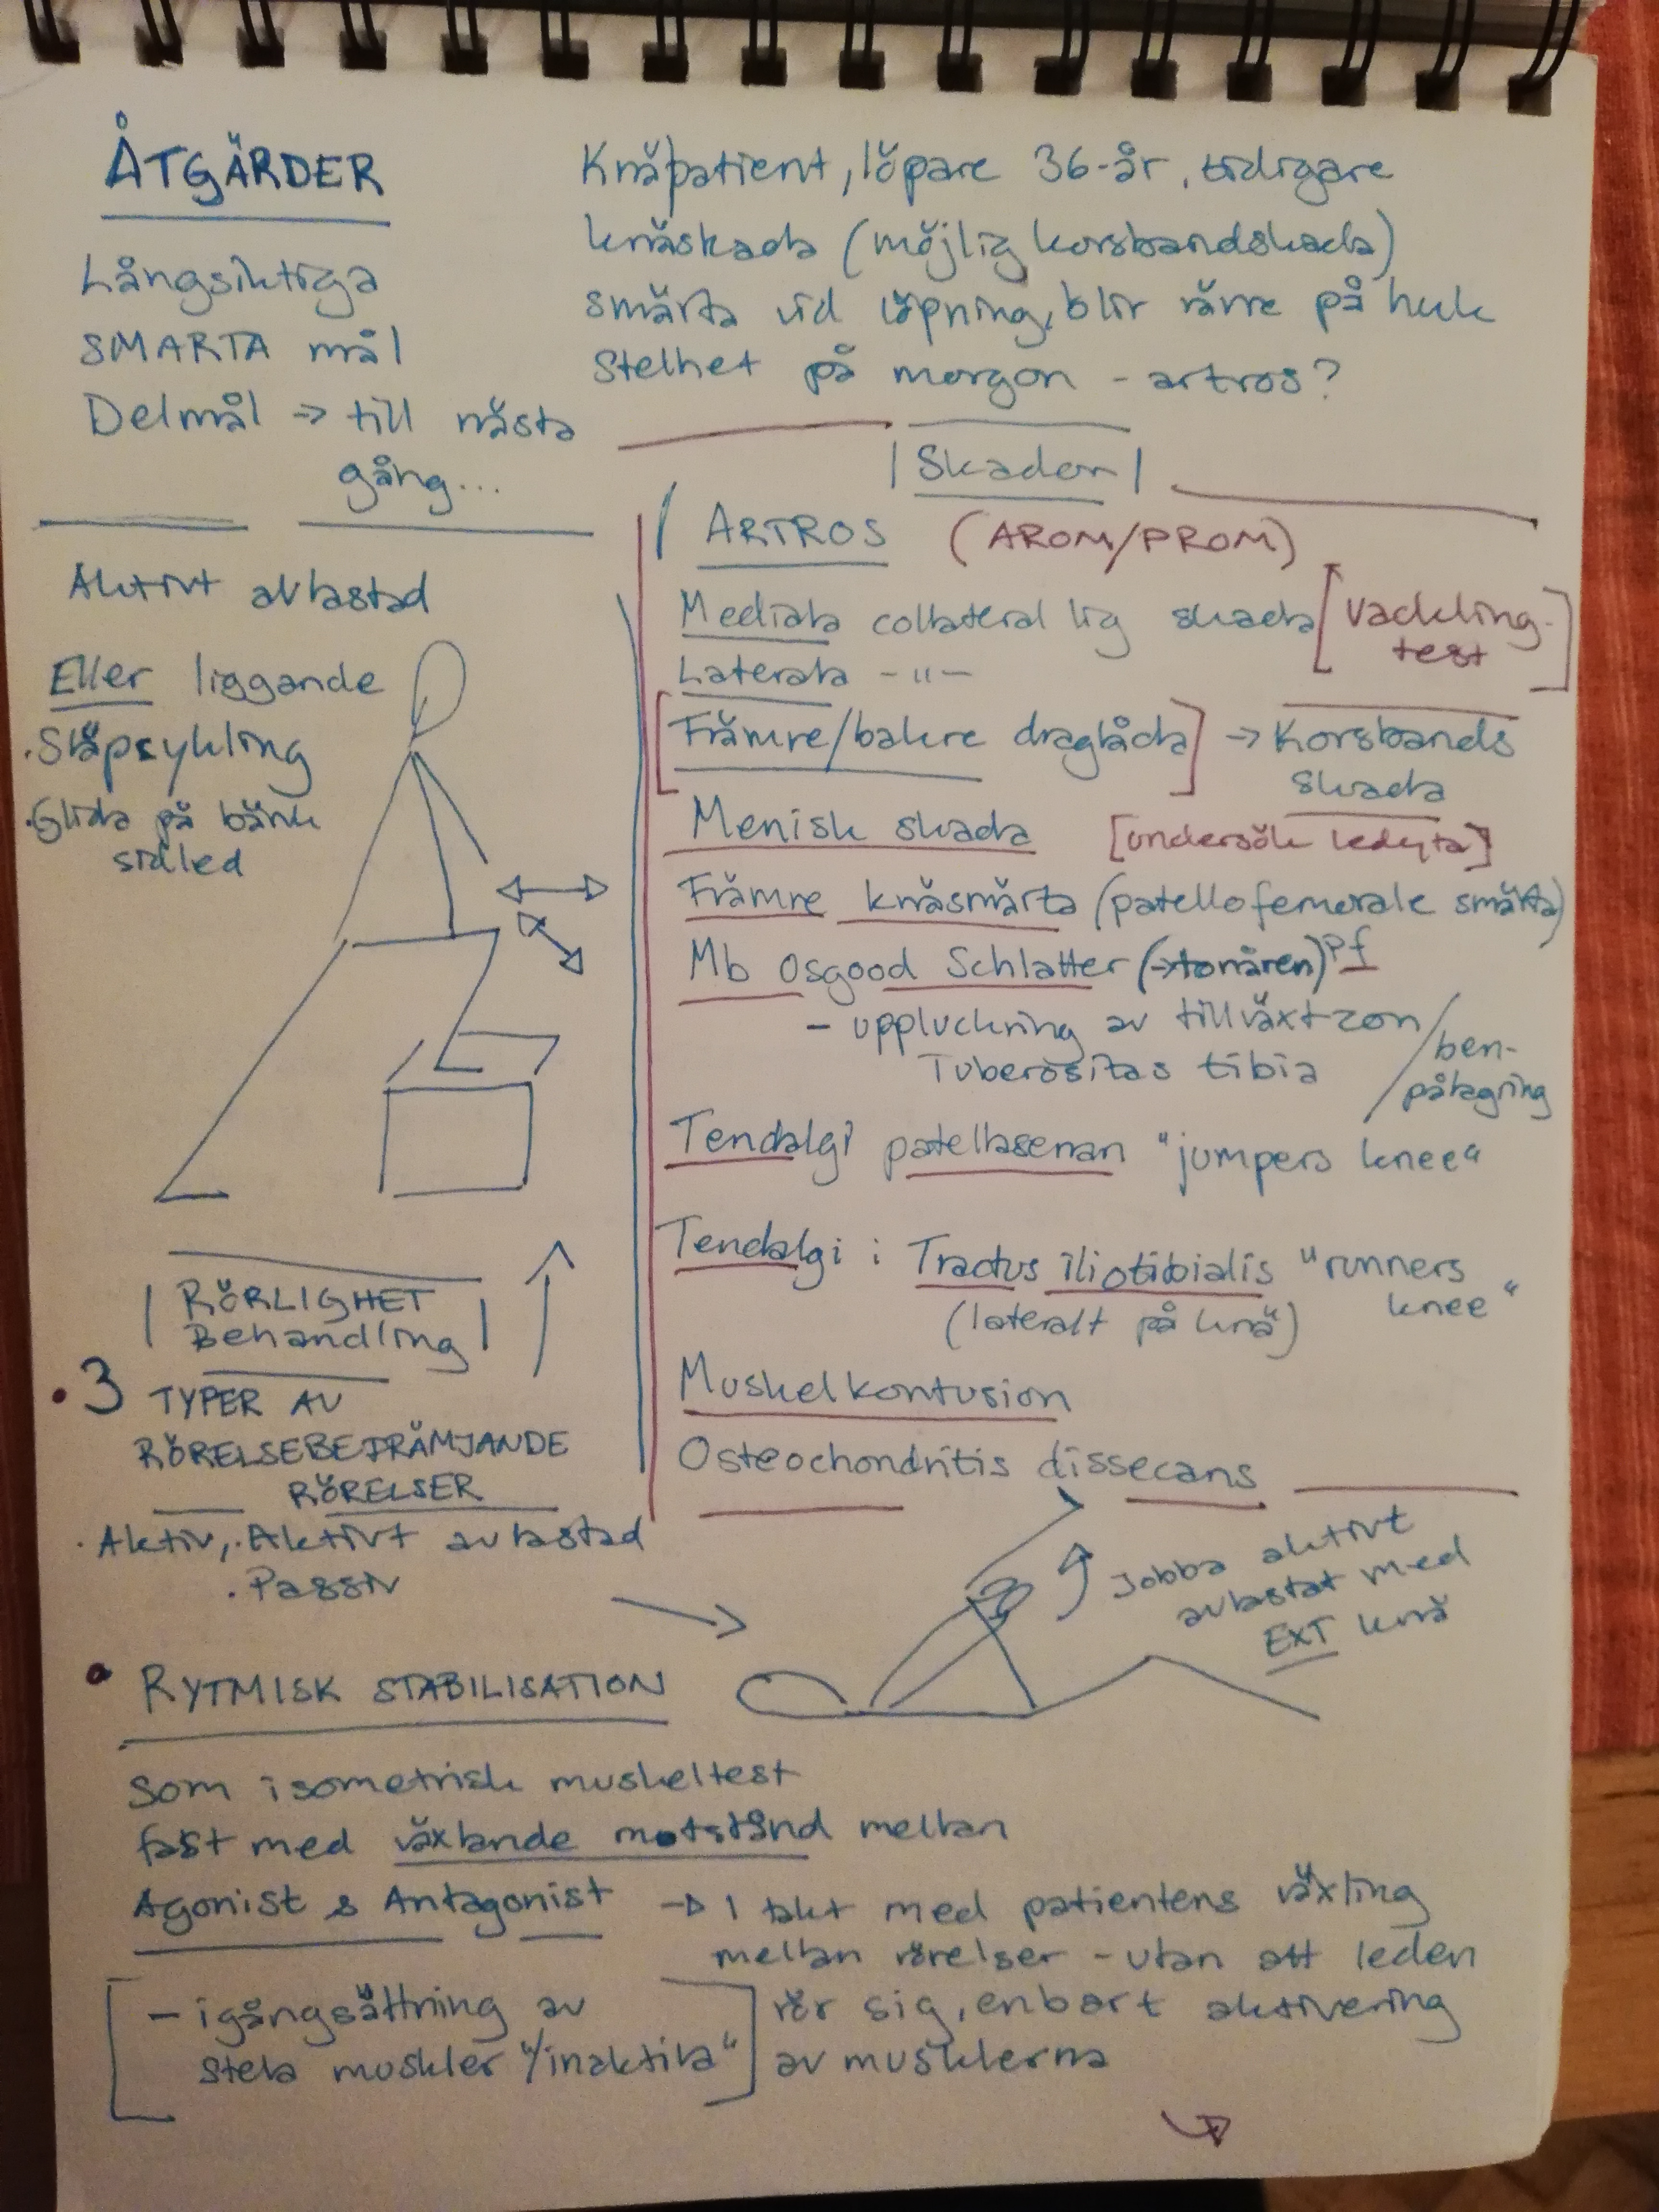 ÅTGÄRDER
Långsiktiga
SMARTA mål
Delmål → till nästa
gång...
Knäpatient, löpare 36-år, tidigare
knäskada (möjlig korsbandskada)
smärta vid löpning, blir värre på huk
Stelhet på morgon - artros?
Aktivt avlastad
Eller liggande
·Släpcykling
·Glida på bänk
sidled
RÖRLIGHET
Behandling
• 3 TYPER AV
RÖRELSEBEFRÄMJANDE
RÖRELSER
· Aktiv, · Aktivt avlastad
· Passiv
|Skador|
ARTROS (AROM/PROM)
Mediala collateral lig skada [Vackling-
test]
Laterala - " -
[Främre/bakre draglåda] → Korsbands
skada
Menisk skada [undersök ledyta]
Främre knäsmärta (patellofemorale smärta)
Mb Osgood Schlatter (→tonåren) Pf
- uppluckring av tillväxtzon /ben-
Tuberositas tibia pålagring
Tendalgi patellasenan "jumpers knee"
Tendalgi i Tractus iliotibialis "runners
(lateralt på knä) knee"
Muskelkontusion
Osteochondritis dissecans
Jobba aktivt
avlastat med
EXT knä
• RYTMISK STABILISATION
Som isometrisk muskeltest
fast med växlande motstånd mellan
Agonist & Antagonist → I takt med patientens växling
mellan rörelser - utan att leden
rör sig, enbart aktivering
av musklerna
[- igångsättning av
stela muskler "/inaktiva"]